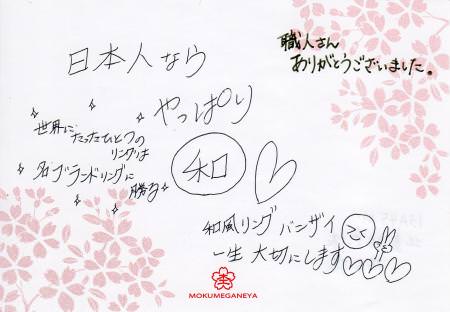 日本人なら
やっぱり
和
職人さん
ありがとうございました。
世界に
たったひとつの
リングは
名ブランドリングに
勝る
和風リング バンザイ
一生 大切にします
MOKUMEGANEYA